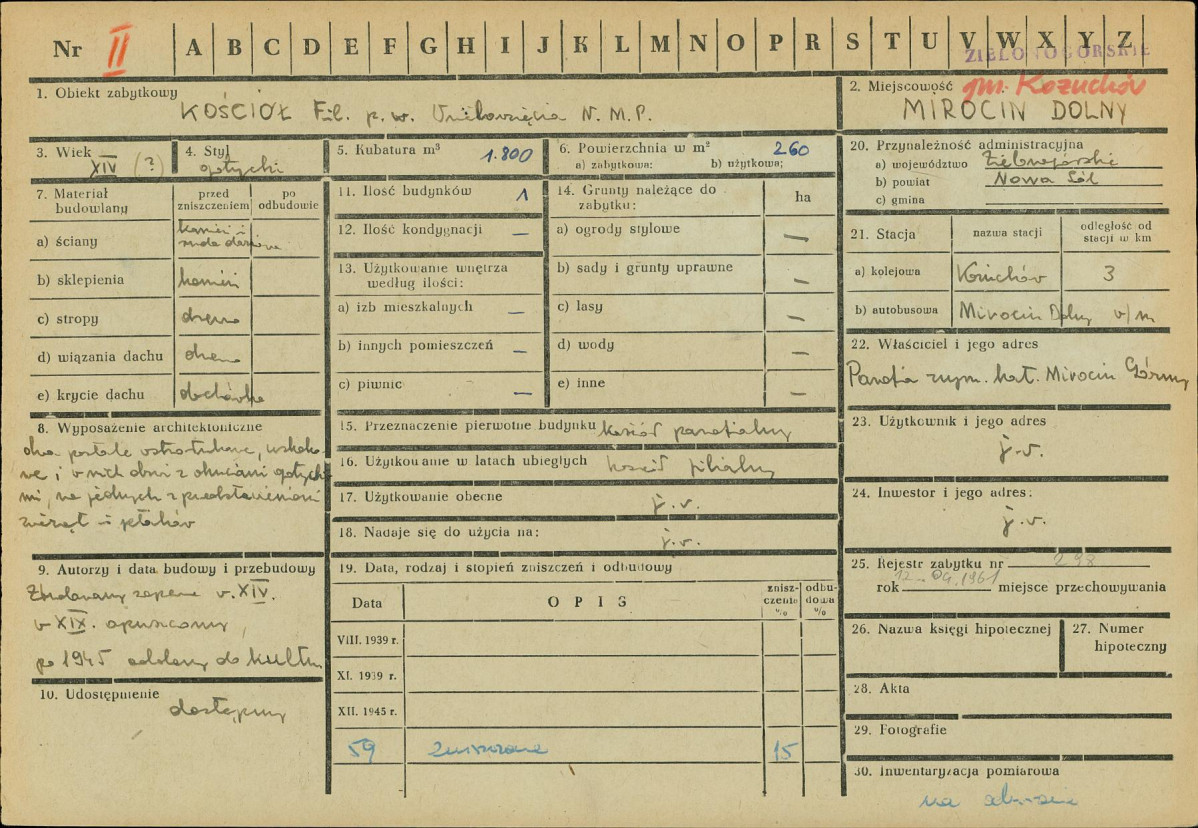 Nr II A B C D E F G H I J K L M N O P R S T U V W X Y Z
ZIELONOGÓRSKIE
1. Obiekt zabytkowy
KOŚCIÓŁ Fil. p. w. N. M. P.
2. Miejscowość gm. Kożuchów
MIROCIN DOLNY
3. Wiek
XIV (?)
4. Styl
gotycki
5. Kubatura m³
1.800
6. Powierzchnia w m² 260
a) zabytkowa: b) użytkowa:
20. Przynależność administracyjna
a) województwo Zielonogórskie
b) powiat Nowa Sól
c) gmina
7. Materiał budowlany
przed zniszczeniem
po odbudowie
a) ściany kamień i ruda darniowa
b) sklepienia kamień
c) stropy drewno
d) wiązania dachu drewno
e) krycie dachu dachówka
11. Ilość budynków 1
12. Ilość kondygnacji —
13. Użytkowanie wnętrza
według ilości:
a) izb mieszkalnych —
b) innych pomieszczeń —
c) piwnic —
14. Grunty należące do
zabytku: ha
a) ogrody stylowe —
b) sady i grunty uprawne —
c) lasy —
d) wody —
e) inne —
21. Stacja
nazwa stacji
odległość od
stacji w km
a) kolejowa Kożuchów 3
b) autobusowa Mirocin Dolny w/m
22. Właściciel i jego adres
Parafia rzym. kat. Mirocin Górny
8. Wyposażenie architektoniczne
dwa portale ostrołukowe, uskoko-
we, i w nich drzwi z okuciami gotycki
mi, na jednych z przedstawieniami
zwierząt i ptaków
15. Przeznaczenie pierwotne budynku kościół parafialny
16. Użytkowanie w latach ubiegłych kościół filialny
17. Użytkowanie obecne j.w.
18. Nadaje się do użycia na: j.w.
23. Użytkownik i jego adres
j.w.
24. Inwestor i jego adres:
j.w.
9. Autorzy i data budowy i przebudowy
Zbudowany zapewne w. XIV.
w XIX. opuszczony,
po 1945 oddany do kultu
10. Udostępnienie
dostępny
19. Data, rodzaj i stopień zniszczeń i odbudowy
Data
OPIS
znisz-
czenie
%
odbu-
dowa
%
VIII. 1939 r.
XI. 1939 r.
XII. 1945 r.
59 15
25. Rejestr zabytku nr 298
rok 12.04.1961 miejsce przechowywania
26. Nazwa księgi hipotecznej
27. Numer
hipoteczny
28. Akta
29. Fotografie
30. Inwentaryzacja pomiarowa